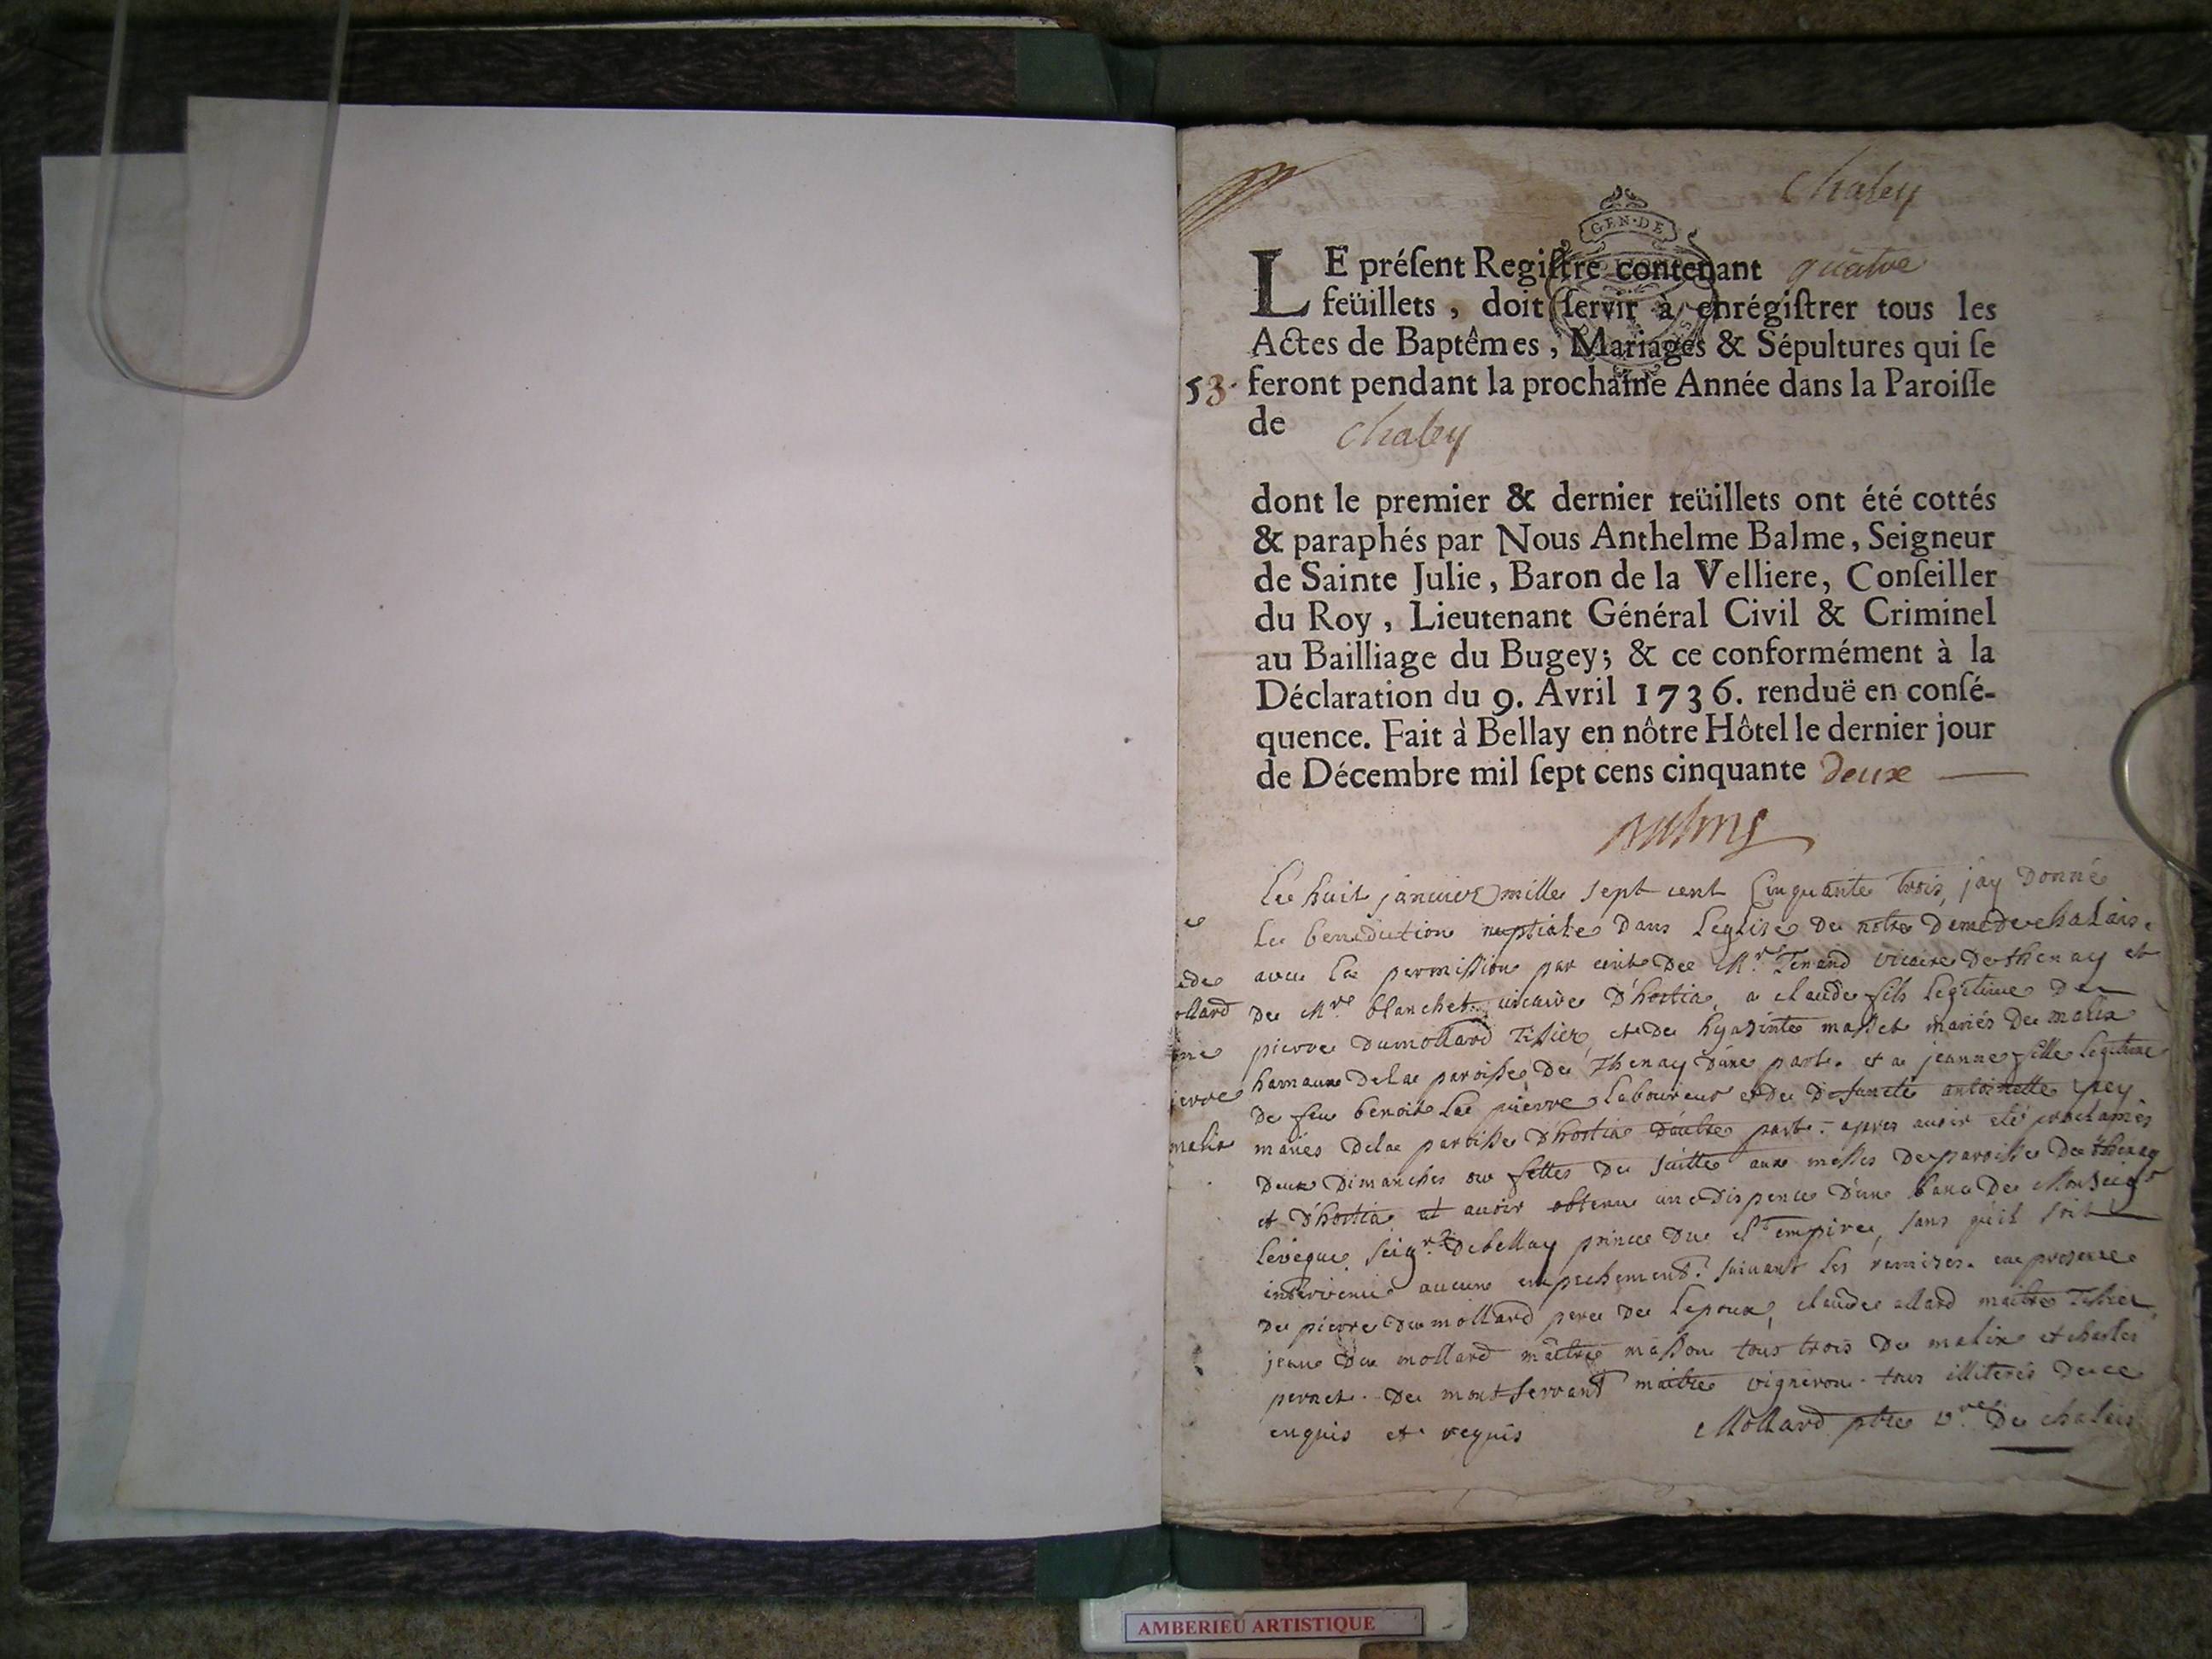 Chaley
GEN·DE
LE préſent Regiſtre contenant quatre
feüillets, doit ſervir à enrégiſtrer tous les
Actes de Baptêmes, Mariages & Sépultures qui ſe
53. feront pendant la prochaine Année dans la Paroiſſe
de Chaley
dont le premier & dernier feüillets ont été cottés
& paraphés par Nous Anthelme Balme, Seigneur
de Sainte Julie, Baron de la Velliere, Conſeiller
du Roy, Lieutenant Général Civil & Criminel
au Bailliage du Bugey; & ce conformément à la
Déclaration du 9. Avril 1736. renduë en conſé-
quence. Fait à Bellay en nôtre Hôtel le dernier jour
de Décembre mil ſept cens cinquante deux
Le huit janvier mille sept cent Cinquante trois, jay Donné
la benediction nuptiale Dans Leglise De notre Deme de chalais.
avec La permission par ecrit De Mr. Tenand vicaire De thenay et
De Mre blanchet vicaire D'hostia, a claude fils legitime De
pierre Dumollard Tissier, et De hyasinte masset mariés De malix
hamaux De La paroisse De Thenay D'une part. et a jeanne fille legitime
De feu benoit La pierre Laboureur et De Defuncte antoinette rey
mariés De la paroisse D'hostia D'autre part. apres avoir eté proclamés
Deux Dimanches ou fettes De suitte aux messes De paroisse De thenay
et D'hostia et avoir obtenu une Dispence D'une banc De Monseigr
Leveque Seigr. De bellay prince Du St empire, sans qu'il soit
intervenu aucun empechement. suivant Les remises. en presence
De pierre Du mollard pere De Lepoux, claude allard maitre Tissier,
jean Du mollard maitre masson tous trois De malix et charles
pernet. De montferrand maitre vigneron. tous illiterés De ce
enquis et requis Mollard ptre vre De chalais
ede
ollard
ierre
malix
AMBERIEU ARTISTIQUE